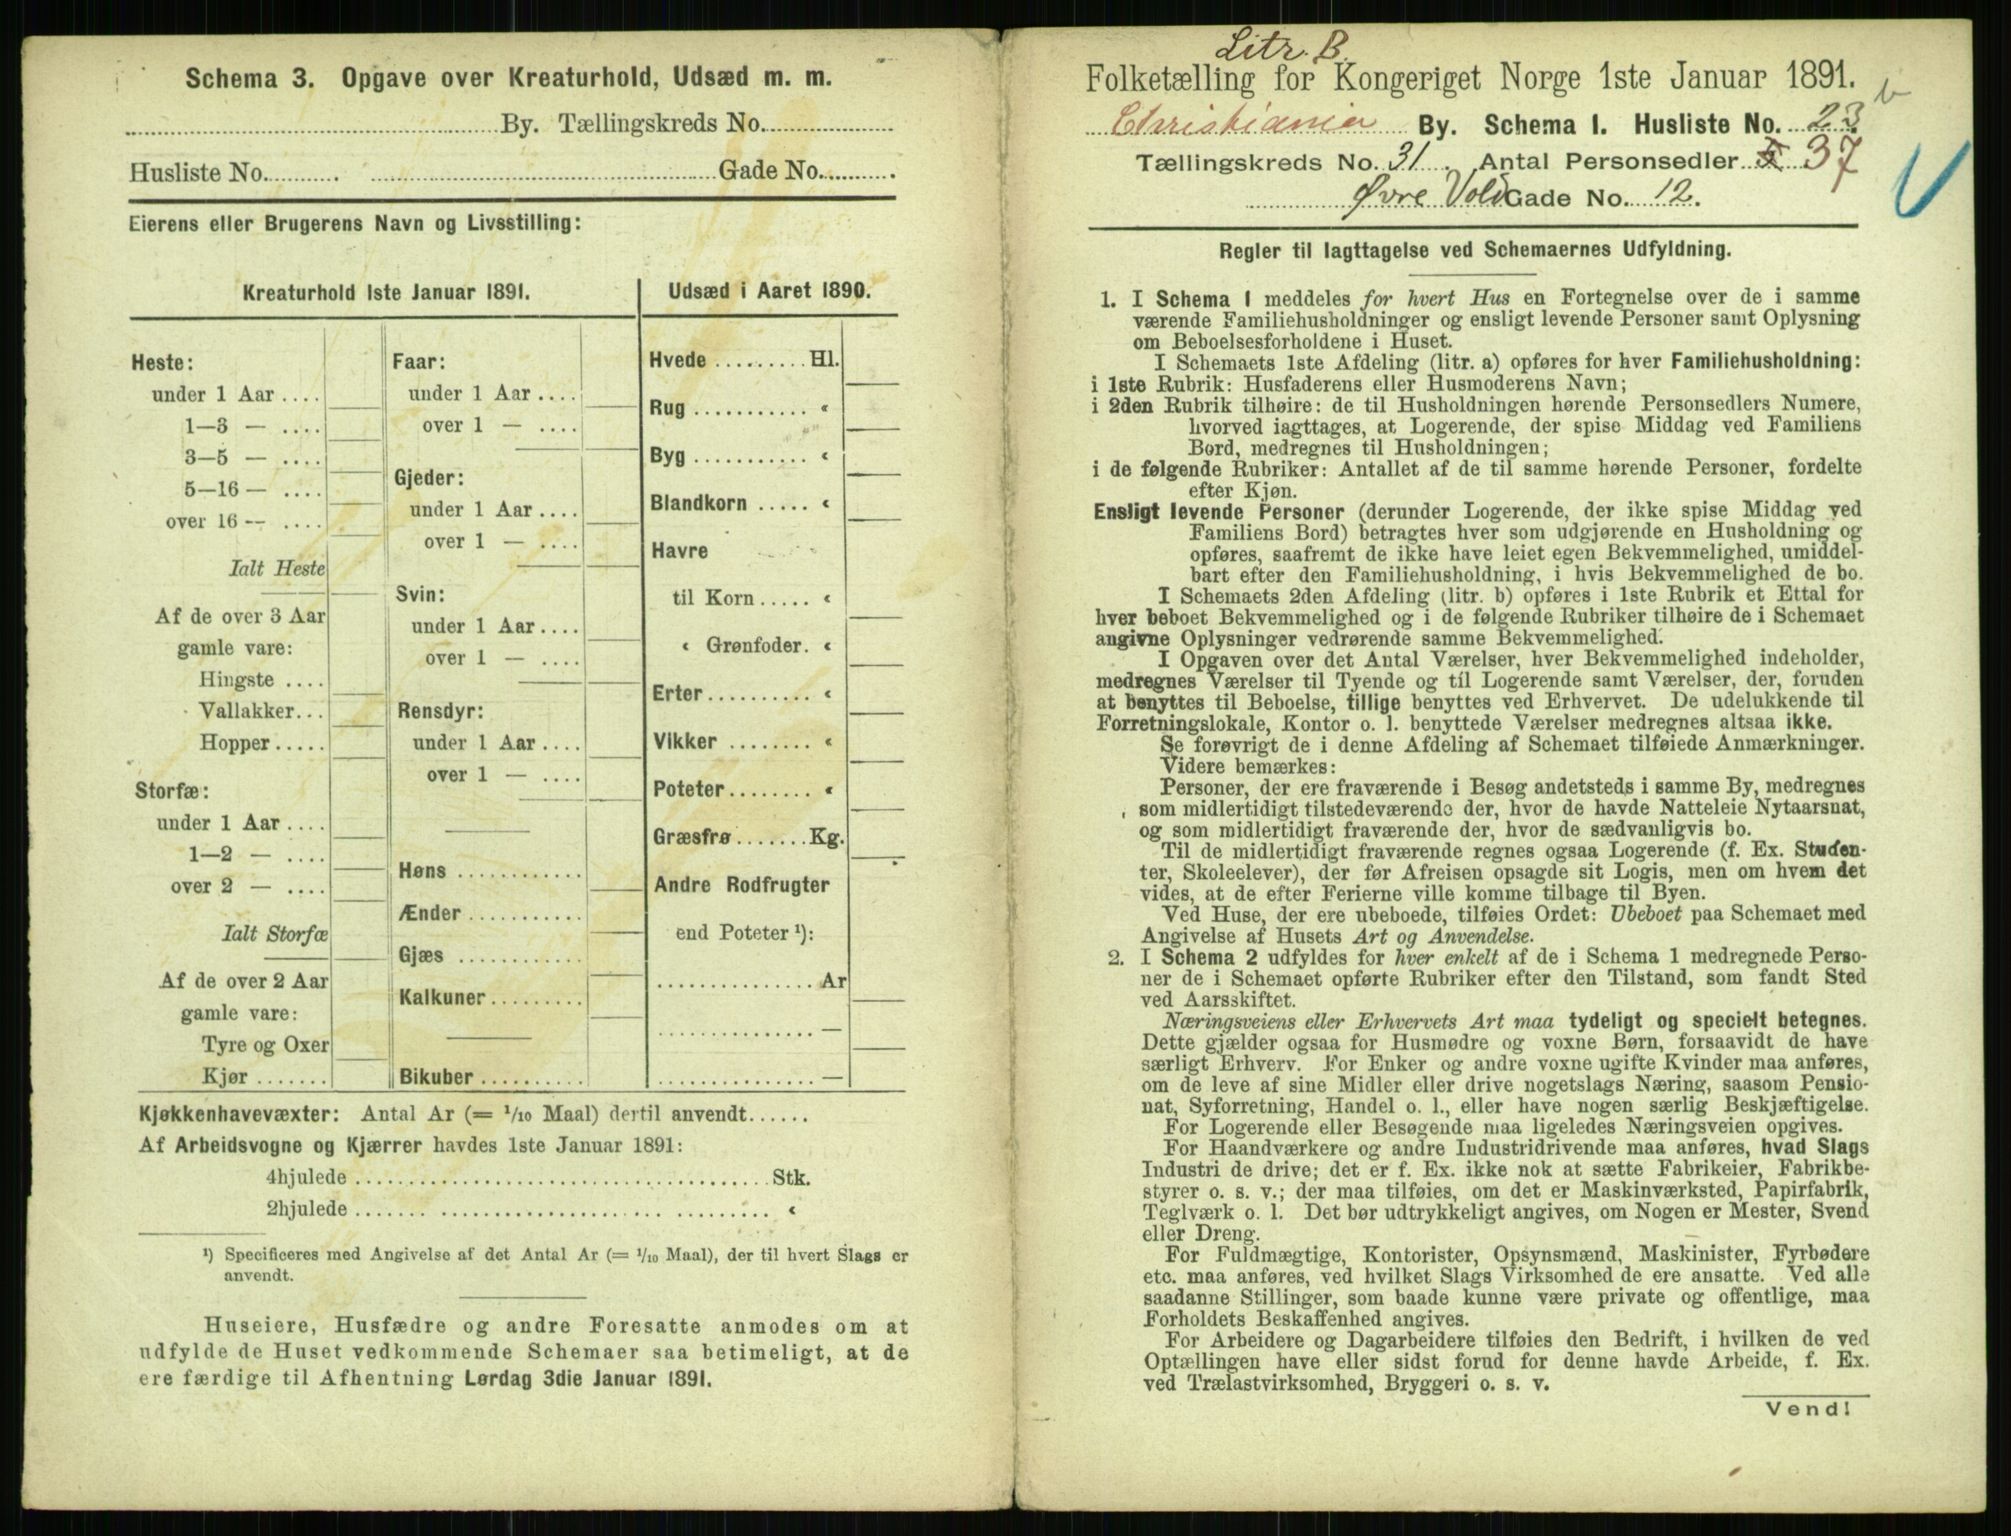 Schema 3. Opgave over Kreaturhold, Udsæd m. m.
By. Tællingskreds No.
Husliste No. Gade No.
Eierens eller Brugerens Navn og Livsstilling:
Kreaturhold 1ste Januar 1891.
Heste:
under 1 Aar ....
1—3 — ....
3—5 — ....
5—16 — ....
over 16 — ....
Ialt Heste
Af de over 3 Aar
gamle vare:
Hingste ....
Vallakker...
Hopper.....
Storfæ:
under 1 Aar ....
1—2 — ....
over 2 — ....
Ialt Storfæ
Af de over 2 Aar
gamle vare:
Tyre og Oxer
Kjør .......
Faar:
under 1 Aar ....
over 1 — ....
Gjeder:
under 1 Aar ....
over 1 — ....
Svin:
under 1 Aar ....
over 1 — ....
Rensdyr:
under 1 Aar ....
over 1 — ....
Høns ............
Ænder ...........
Gjæs ............
Kalkuner.........
Bikuber ..........
Udsæd i Aaret 1890.
Hvede ......... Hl.
Rug ........... «
Byg ........... «
Blandkorn ..... «
Havre
til Korn ..... «
« Grønfoder. «
Erter .......... «
Vikker ........ «
Poteter........ «
Græsfrø ....... Kg.
Andre Rodfrugter
end Poteter ¹):
............... Ar
............... —
............... —
Kjøkkenhavevæxter: Antal Ar (= 1/10 Maal) dertil anvendt......
Af Arbeidsvogne og Kjærrer havdes 1ste Januar 1891:
4hjulede ..................................... Stk.
2hjulede ....... ..................... ......... «
¹) Specificeres med Angivelse af det Antal Ar (= 1/10 Maal), der til hvert Slags er
anvendt.
Huseiere, Husfædre og andre Foresatte anmodes om at
udfylde de Huset vedkommende Schemaer saa betimeligt, at de
ere færdige til Afhentning Lørdag 3die Januar 1891.
Litr. B.
Folketælling for Kongeriget Norge 1ste Januar 1891.
Christiania By. Schema 1. Husliste No. 23 b
Tællingskreds No. 31. Antal Personsedler 37
Øvre Vold Gade No. 12.
Regler til Iagttagelse ved Schemaernes Udfyldning.
1. I Schema 1 meddeles for hvert Hus en Fortegnelse over de i samme
værende Familiehusholdninger og ensligt levende Personer samt Oplysning
om Beboelsesforholdene i Huset.
I Schemaets 1ste Afdeling (litr. a) opføres for hver Familiehusholdning:
i 1ste Rubrik: Husfaderens eller Husmoderens Navn;
i 2den Rubrik tilhøire: de til Husholdningen hørende Personsedlers Numere,
hvorved iagttages, at Logerende, der spise Middag ved Familiens
Bord, medregnes til Husholdningen;
i de følgende Rubriker: Antallet af de til samme hørende Personer, fordelte
efter Kjøn.
Ensligt levende Personer (derunder Logerende, der ikke spise Middag ved
Familiens Bord) betragtes hver som udgjørende en Husholdning og
opføres, saafremt de ikke have leiet egen Bekvemmelighed, umiddel-
bart efter den Familiehusholdning, i hvis Bekvemmelighed de bo.
I Schemaets 2den Afdeling (litr. b) opføres i 1ste Rubrik et Ettal for
hver beboet Bekvemmelighed og i de følgende Rubriker tilhøire de i Schemaet
angivne Oplysninger vedrørende samme Bekvemmelighed.
I Opgaven over det Antal Værelser, hver Bekvemmelighed indeholder,
medregnes Værelser til Tyende og til Logerende samt Værelser, der, foruden
at benyttes til Beboelse, tillige benyttes ved Erhvervet. De udelukkende til
Forretningslokale, Kontor o. l. benyttede Værelser medregnes altsaa ikke.
Se forøvrigt de i denne Afdeling af Schemaet tilføiede Anmærkninger.
Videre bemærkes:
Personer, der ere fraværende i Besøg andetsteds i samme By, medregnes
som midlertidigt tilstedeværende der, hvor de havde Natteleie Nytaarsnat,
og som midlertidigt fraværende der, hvor de sædvanligvis bo.
Til de midlertidigt fraværende regnes ogsaa Logerende (f. Ex. Studen-
ter, Skoleelever), der før Afreisen opsagde sit Logis, men om hvem det
vides, at de efter Ferierne ville komme tilbage til Byen.
Ved Huse, der ere ubeboede, tilføies Ordet: Ubeboet paa Schemaet med
Angivelse af Husets Art og Anvendelse.
2. I Schema 2 udfyldes for hver enkelt af de i Schema 1 medregnede Perso-
ner de i Schemaet opførte Rubriker efter den Tilstand, som fandt Sted
ved Aarsskiftet.
Næringsveiens eller Erhvervets Art maa tydeligt og specielt betegnes.
Dette gjælder ogsaa for Husmødre og voxne Børn, forsaavidt de have
særligt Erhverv. For Enker og andre voxne ugifte Kvinder maa anføres,
om de leve af sine Midler eller drive nogetslags Næring, saasom Pensio-
nat, Syforretning, Handel o. l., eller have nogen særlig Beskjæftigelse.
For Logerende eller Besøgende maa ligeledes Næringsveien opgives.
For Haandværkere og andre Industridrivende maa anføres, hvad Slags
Industri de drive; det er f. Ex. ikke nok at sætte Fabrikeier, Fabrikbe-
styrer o. s. v.; der maa tilføies, om det er Maskinværksted, Papirfabrik,
Teglværk o. l. Det bør udtrykkeligt angives, om Nogen er Mester, Svend
eller Dreng.
For Fuldmægtige, Kontorister, Opsynsmænd, Maskinister, Fyrbødere
etc. maa anføres, ved hvilket Slags Virksomhed de ere ansatte. Ved alle
saadanne Stillinger, som baade kunne være private og offentlige, maa
Forholdets Beskaffenhed angives.
For Arbeidere og Dagarbeidere tilføies den Bedrift, i hvilken de ved
Optællingen have eller sidst forud for denne havde Arbeide, f. Ex.
ved Trælastvirksomhed, Bryggeri o. s. v.
Vend!